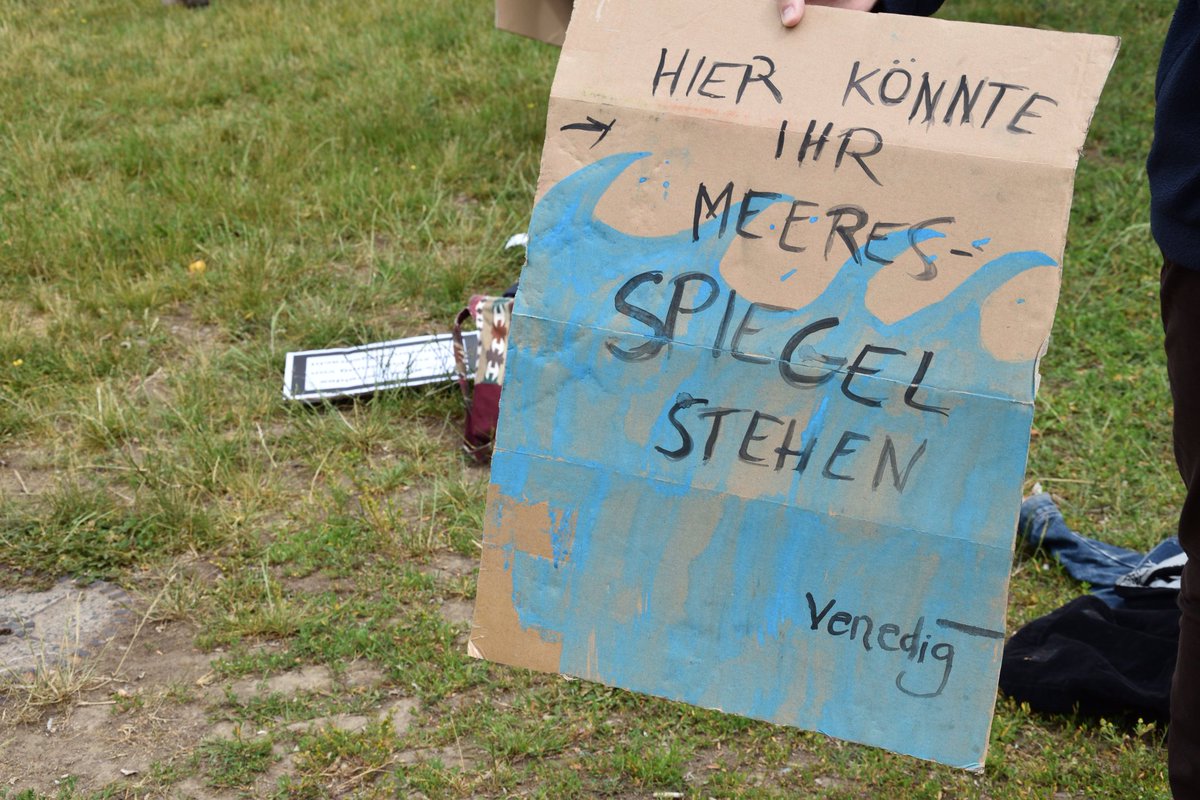 HIER KÖNNTE
IHR
MEERES-
SPIEGEL
STEHEN
Venedig